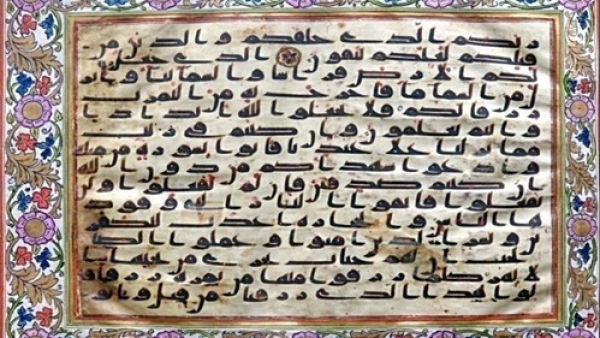 ربكم الذي خلقكم والذين من
قبلكم لعلكم تتقون الذي جعل
لكم الارض فرشا والسما بنا وانز
ل من السما ما فاخرج به من الثمرت
رزقا لكم فلا تجعلوا لله اندادا
وانتم تعلمون وان كنتم في ريب
مما نزلنا على عبدنا فاتوا بسورة من مثله
وادعوا شهداكم من دون الله
ان كنتم صدقين فان لم تفعلوا ولن
تفعلوا فاتقوا النار التي وقود
ها الناس والحجارة اعدت للكفر
ين وبشر الذين امنوا وعملوا الصا
لحت ان لهم جنت تجري من تحتها ا
لانهر كلما رزقوا منها من ثمرة رزقا قا
لوا هذا الذي رزقنا من قبل واتوا